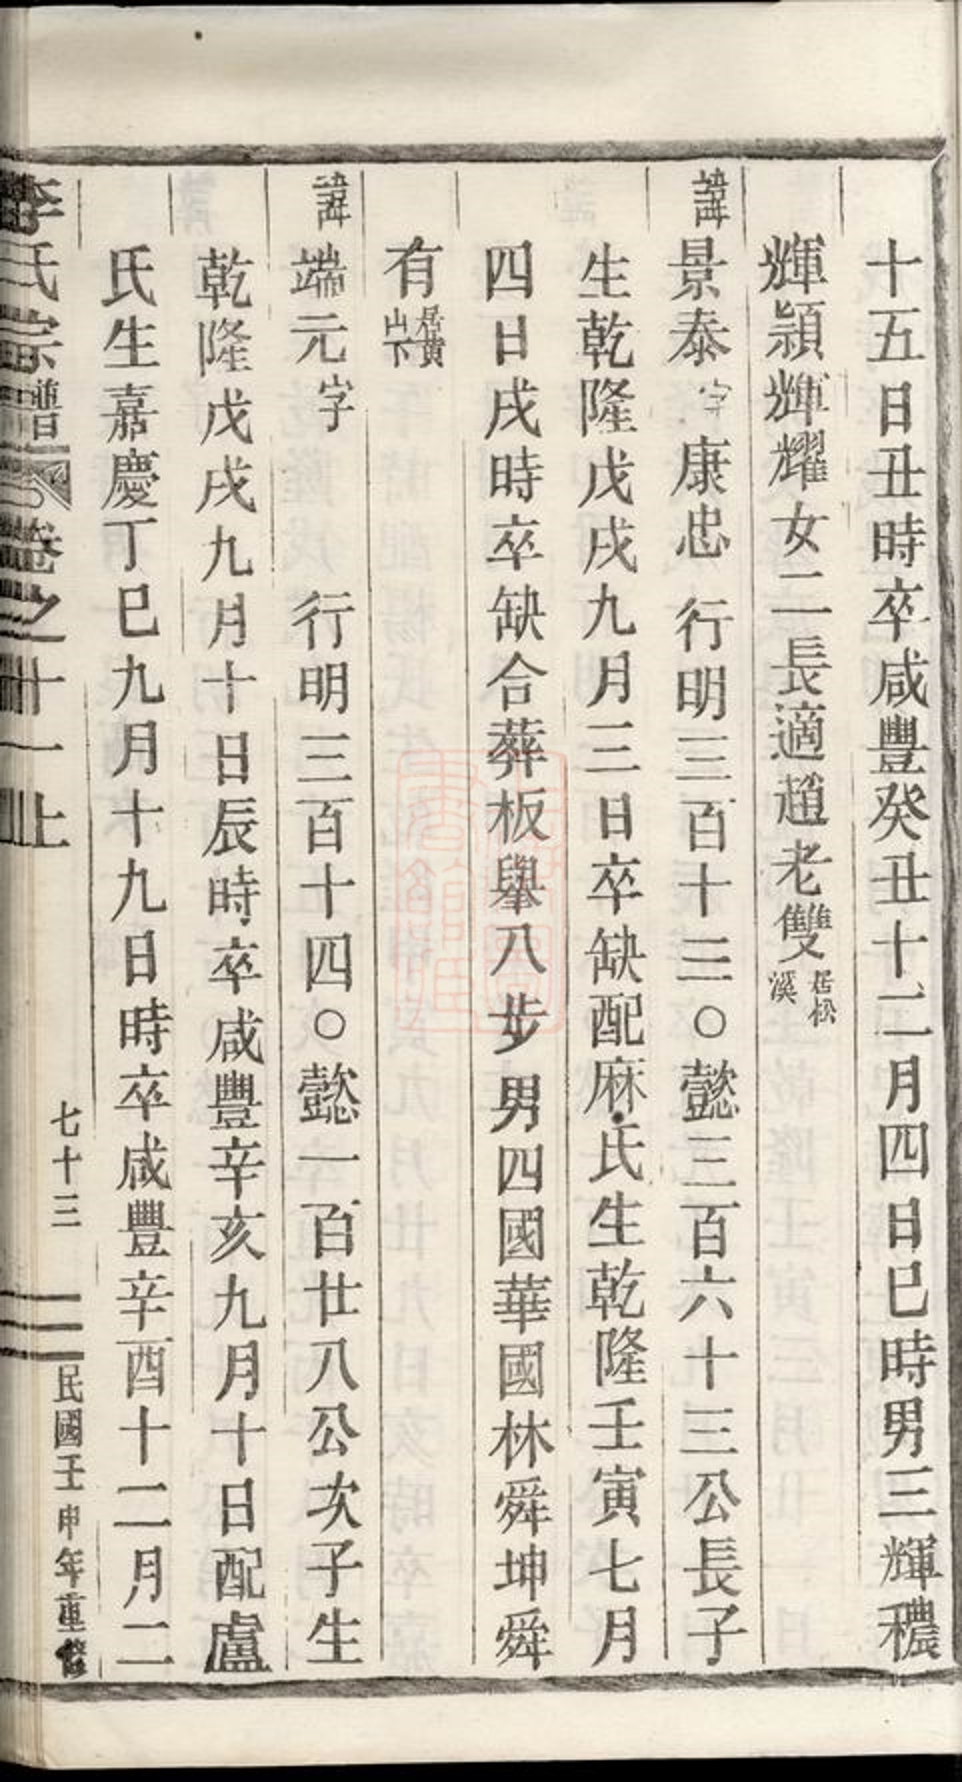 十五日丑時卒咸豐癸丑十二月四日巳時男三輝穠
輝穎輝耀女二長適趙老雙居松溪
諱景泰字康忠 行明三百十三○懿三百六十三公長子
生乾隆戊戌九月三日卒缺配麻氏生乾隆壬寅七月
四日戌時卒缺合葬板舉八步男四國華國林舜坤舜
有居黄山下
諱端元字 行明三百十四○懿一百廿八公次子生
乾隆戊戌九月十日辰時卒咸豐辛亥九月十日配盧
氏生嘉慶丁巳九月十九日時卒咸豐辛酉十二月二
李氏宗譜 卷之十一上 七十三 民國壬申年重修